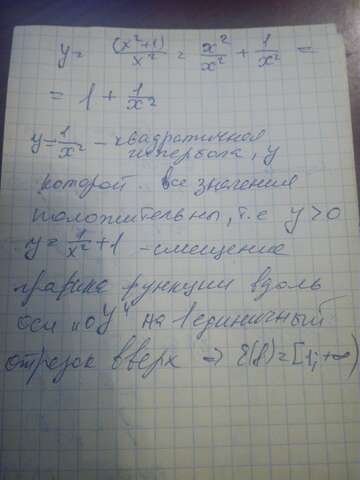 y = (x²+1)/x² = x²/x² + 1/x² =
= 1 + 1/x²
y = 1/x² - квадратичная
гипербола, у
которой все значения
положительны, т.е y>0
y = 1/x² + 1 - смещение
графика функции вдоль
оси "оу" на 1 единичный
отрезок вверх ⇒ E(f) = [1; +∞)